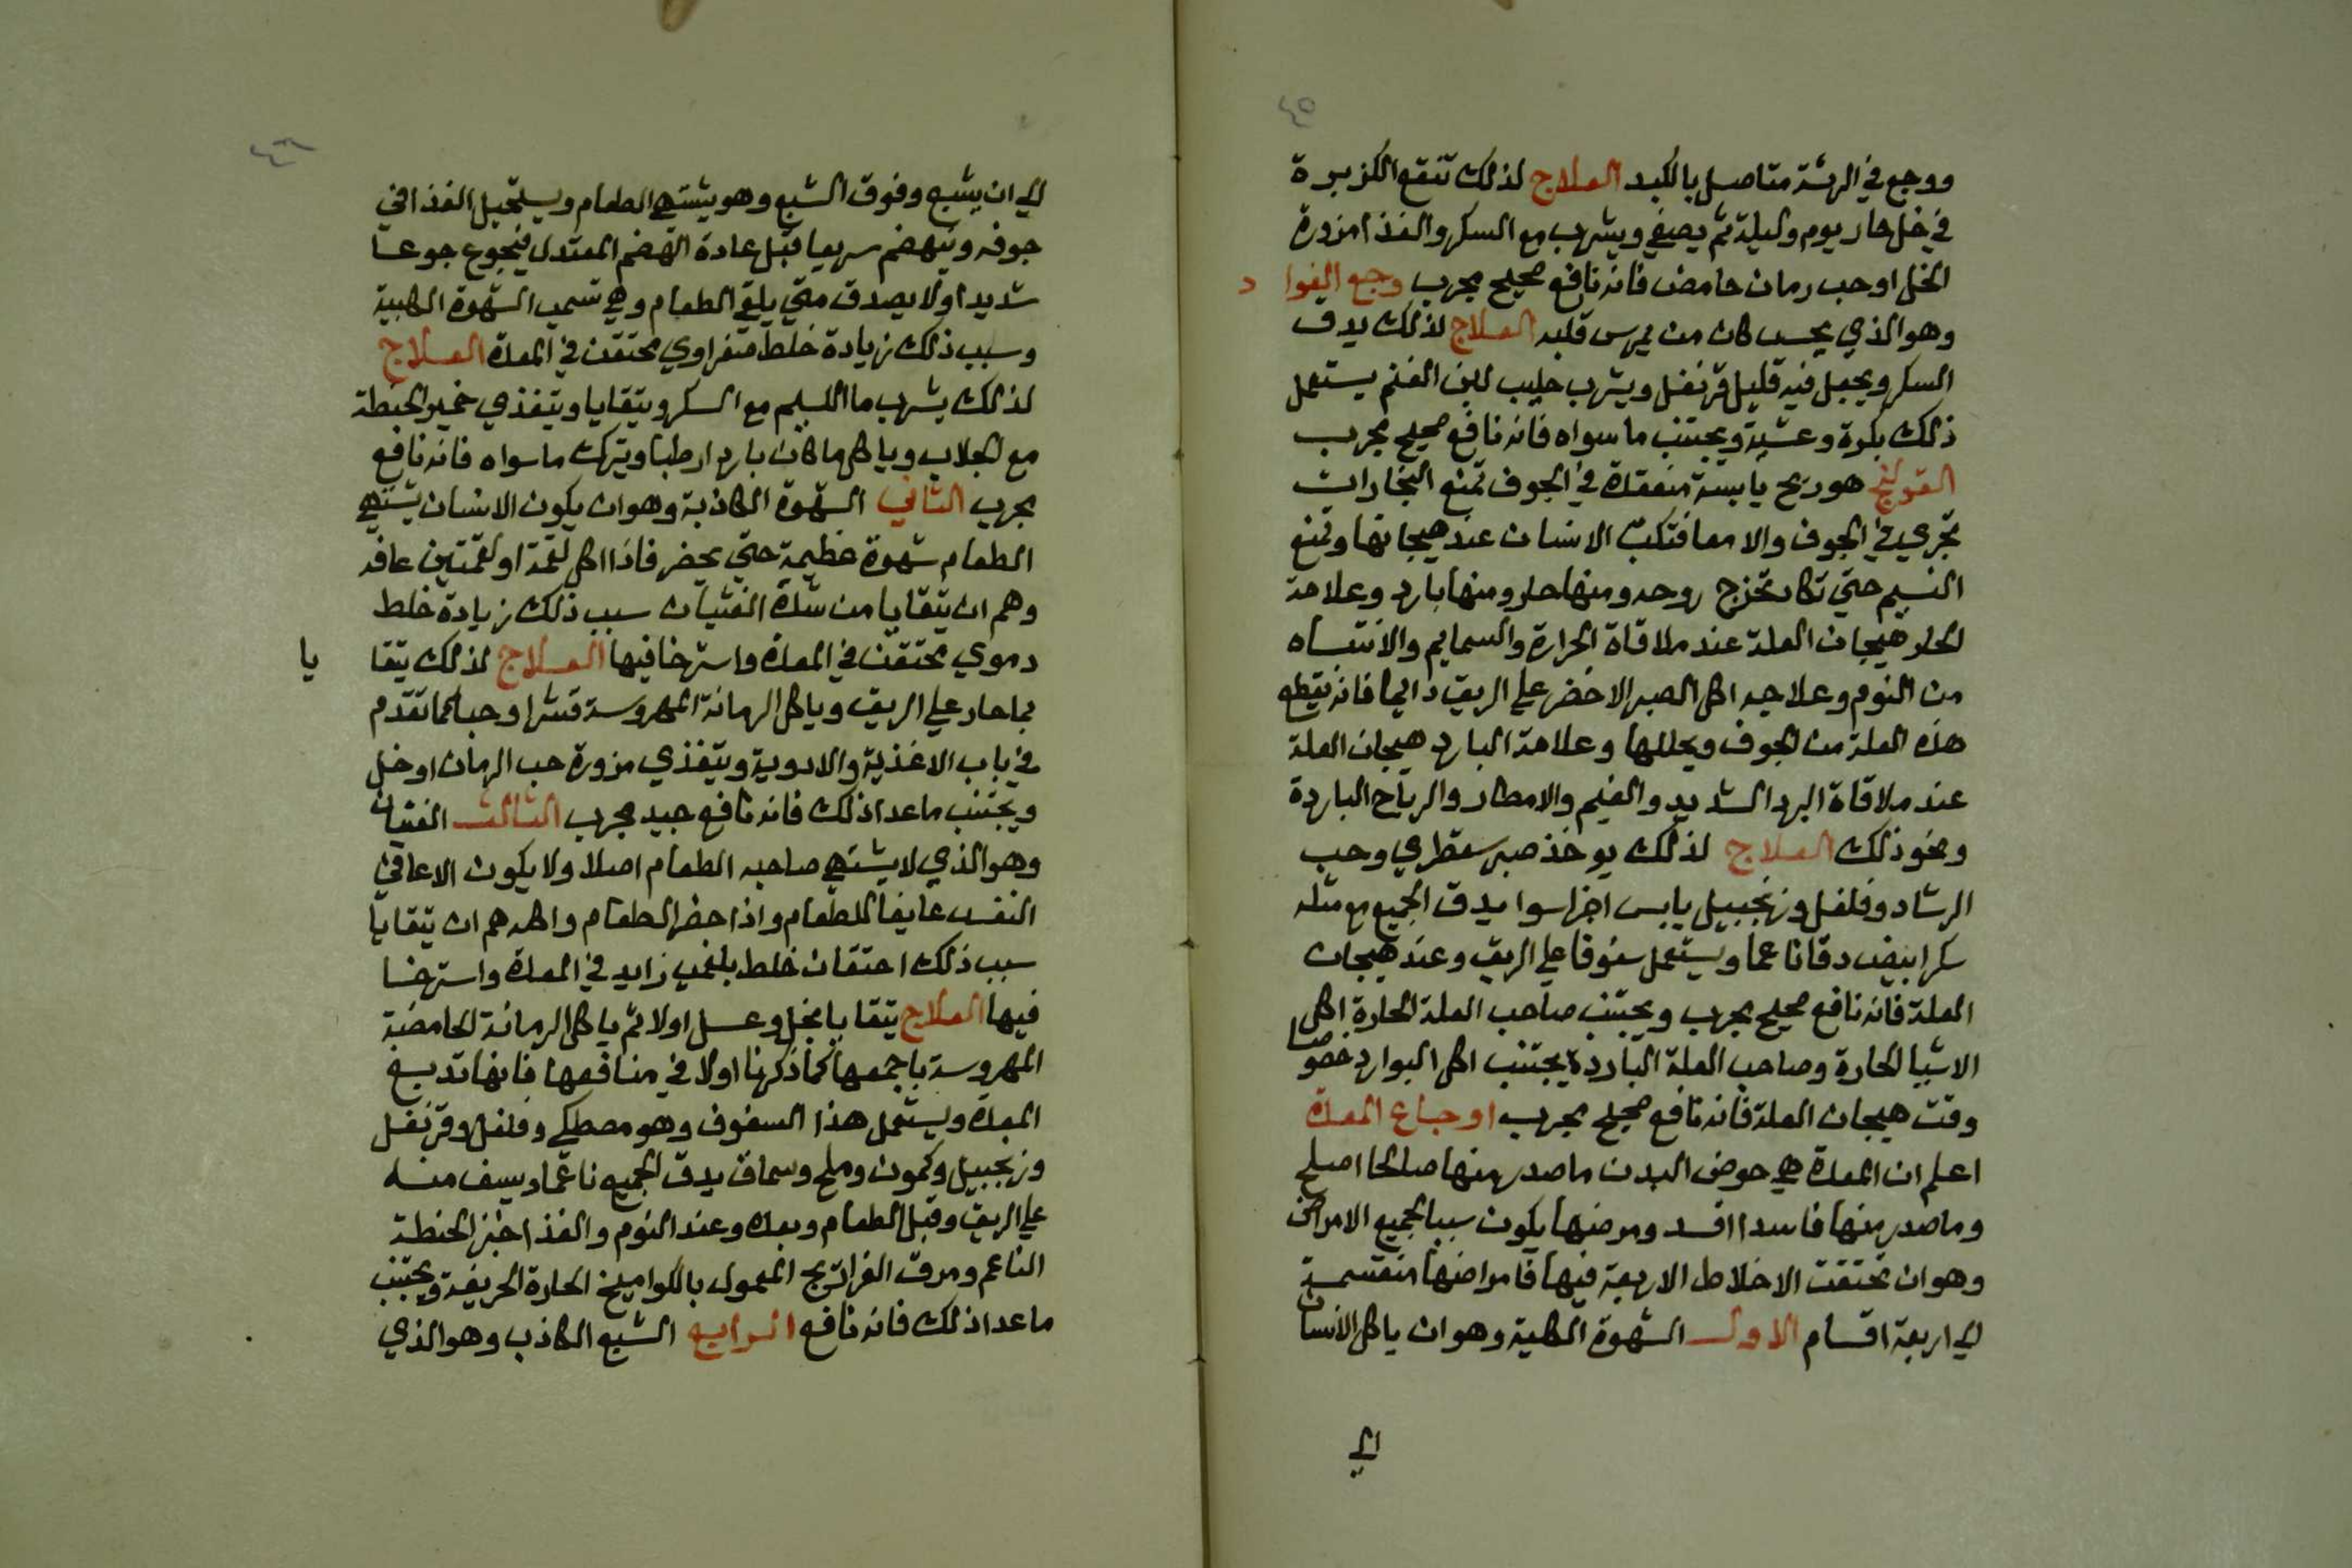 ٤٥
ووجع في الرئة متاصل بالكبد العلاج لذلك تنقع الكزبرة
في خل حار يوم وليلة ثم يصفي ويشرب مع السكر والغذا مزورة
الخل او حب رمان حامض فانه نافع صحيح مجرب وجع الفوا د
وهو الذي يحس كان من يمرس قلبه العلاج لذلك يدق
السكر ويجعل فيه قليل قرنفل ويشرب حليب لبن الغنم يستعمل
ذلك بكرة وعشية ويجتنب ما سواه فانه نافع صحيح مجرب
القولنج هو ريح يابسة منعقدة في الجوف تمنع البخارات
تجري في الجوف والامعا فتكب الانسان عند هيجانها وتمنع
النسيم حتي تكاد تخرج روحه ومنها حار ومنها بارد وعلامة
الحار هيجان العلة عند ملاقاة الحرارة والسمايم والانتباه
من النوم وعلاجه اكل الصبر الاخضر علي الريق دايما فانه يقطع
هذه العلة من الجوف ويحللها وعلامة البارد هيجان العلة
عند ملاقاة البرد الشديد والغيم والامطار والرياح الباردة
ونحو ذلك العلاج لذلك يوخذ صبر سقطري وحب
الرشاد وفلفل وزنجبيل يابس اجزا سوا يدق الجميع مع مثله
سكر ابيض دقا ناعما ويستعمل سفوفا علي الريق وعند هيجان
العلة فانه نافع صحيح مجرب ويجتنب صاحب العلة الحارة اكل
الاشيا الحارة وصاحب العلة الباردة يجتنب اكل البوارد خصوصا
وقت هيجان العلة فانه نافع صحيح مجرب اوجاع المعدة
اعلم ان المعدة هي حوض البدن ما صدر منها صالحا اصلح
وما صدر منها فاسدا افسد ومرضها يكون سببا لجميع الامراض
وهو ان تحتقن الاخلاط الاربعة فيها فامراضها منقسمة
الي اربعة اقسام الاول الشهوة الكلبية وهو ان ياكل الانسان
الي
٤٦
الي ان يشبع وفوق الشبع وهو يشتهي الطعام ويستحيل الغذا في
جوفه وينهضم سريعا قبل عادة الهضم المعتدل فيجوع جوعا
شديدا ولا يصدق متي يلقي الطعام وهي تسمي الشهوة الكلبية
وسبب ذلك زيادة خلط صفراوي محتقن في المعدة العلاج
لذلك يشرب ما السليم مع السكر ويتقايا ويتغذي خمير الحنطة
مع الجلاب وياكل ما كان باردا رطبا ويترك ما سواه فانه نافع
مجرب الثاني الشهوة الكاذبة وهو ان يكون الانسان يشتهي
الطعام شهوة عظيمة حتي يحضر فاذا اكل لقمة او لقمتين عافه
وهم ان يتقايا من شدة الغثيان سبب ذلك زيادة خلط
دموي محتقن في المعدة واسترخا فيها العلاج لذلك يتقا يا
بماحار علي الريق وياكل الرمانة المهروسة قشرا وحبا كما تقدم
في باب الاغذية والادوية ويتغذي مزورة حب الرمان او خل
ويجتنب ما عدا ذلك فانه نافع جيد مجرب الثالث الغثيان
وهو الذي لا يشتهي صاحبه الطعام اصلا ولا يكون الا عافي
النفس عايفا للطعام واذا حضر الطعام واكله هم ان يتقايا
سبب ذلك احتقان خلط بلغمي زايد في المعدة واسترخا
فيها العلاج يتقايا بخل وعسل اولا ثم ياكل الرمانة الحامضة
المهروسة باجمعها كما ذكرنا اولا في منافعها فانها تدبغ
المعدة ويستعمل هذا السفوف وهو مصطكي وفلفل وقرنفل
وزنجبيل وكمون وملح وسماق يدق الجميع ناعما ويسف منه
علي الريق وقبل الطعام وبعده وعند النوم والغذا خبز الحنطة
الناعم ومرق الفراريج المعمول بالكواميخ الحارة الحريفة ويجتنب
ما عدا ذلك فانه نافع الرابع الشبع الكاذب وهو الذي